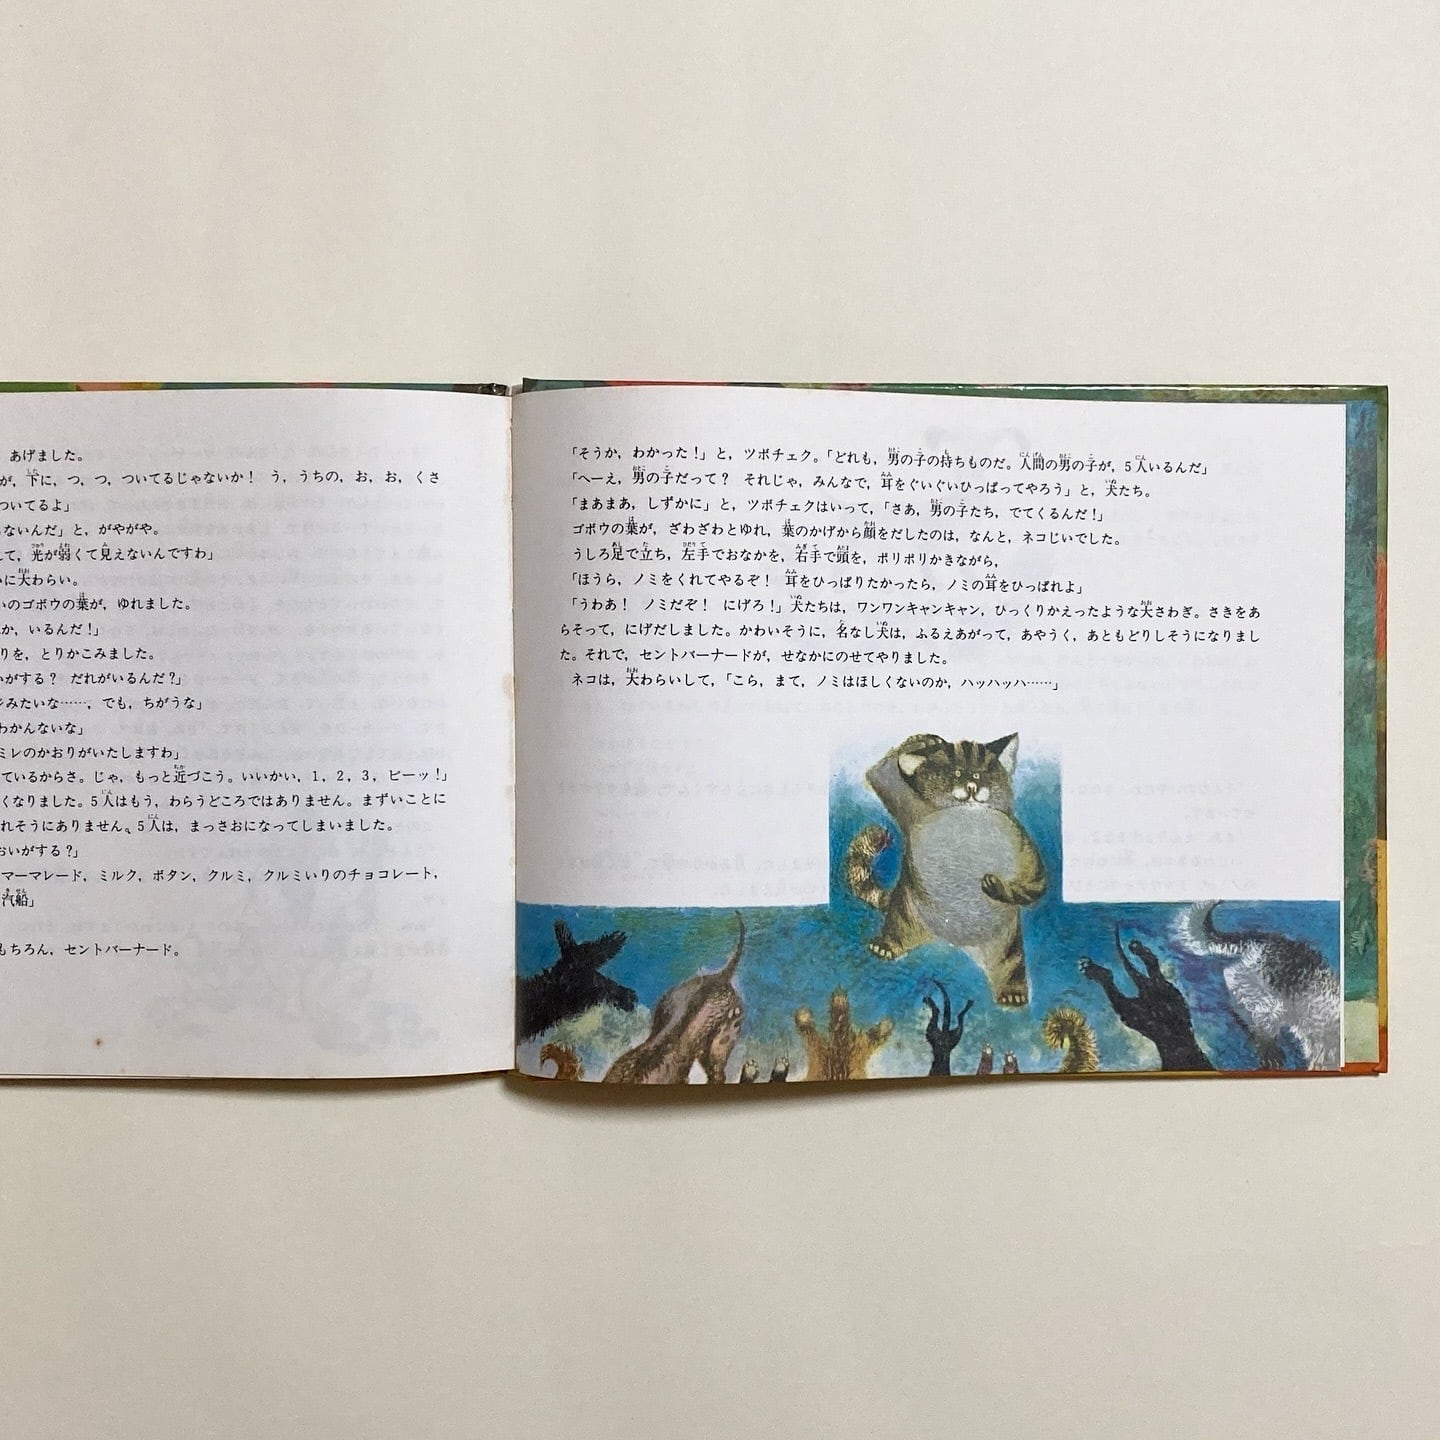 あげました。
が，下に，つ，つ，ついてるじゃないか！　う，うちの，お，お，くさ
ついてるよ」
ないんだ」と，がやがや。
して，光が弱くて見えないんですわ」
いに大わらい。
いのゴボウの葉が，ゆれました。
か，いるんだ！」
りを，とりかこみました。
いがする？　だれがいるんだ？」
ジみたいな……，でも，ちがうな」
わかんないな」
ミレのかおりがいたしますわ」
ているからさ。じゃ，もっと近づこう。いいかい，1，2，3，ピーッ！」
くなりました。5人はもう，わらうどころではありません。まずいことに
れそうにありません。5人は，まっさおになってしまいました。
おいがする？」
マーマレード，ミルク，ボタン，クルミ，クルミいりのチョコレート，
汽船」
もちろん，セントバーナード。
「そうか，わかった！」と，ツボチェク。「どれも，男の子の持ちものだ。人間の男の子が，5人いるんだ」
「へーえ，男の子だって？　それじゃ，みんなで，耳をぐいぐいひっぱってやろう」と，犬たち。
「まあまあ，しずかに」と，ツボチェクはいって，「さあ，男の子たち，でてくるんだ！」
ゴボウの葉が，ざわざわとゆれ，葉のかげから顔をだしたのは，なんと，ネコじいでした。
うしろ足で立ち，左手でおなかを，右手で頭を，ボリボリかきながら，
「ほうら，ノミをくれてやるぞ！　耳をひっぱりたかったら，ノミの耳をひっぱれよ」
「うわあ！　ノミだぞ！　にげろ！」犬たちは，ワンワンキャンキャン，ひっくりかえったような大さわぎ。さきをあ
らそって，にげだしました。かわいそうに，名なし犬は，ふるえあがって，あやうく，あともどりしそうになりまし
た。それで，セントバーナードが，せなかにのせてやりました。
ネコは，大わらいして，「こら，まて，ノミはほしくないのか，ハッハッハ……」